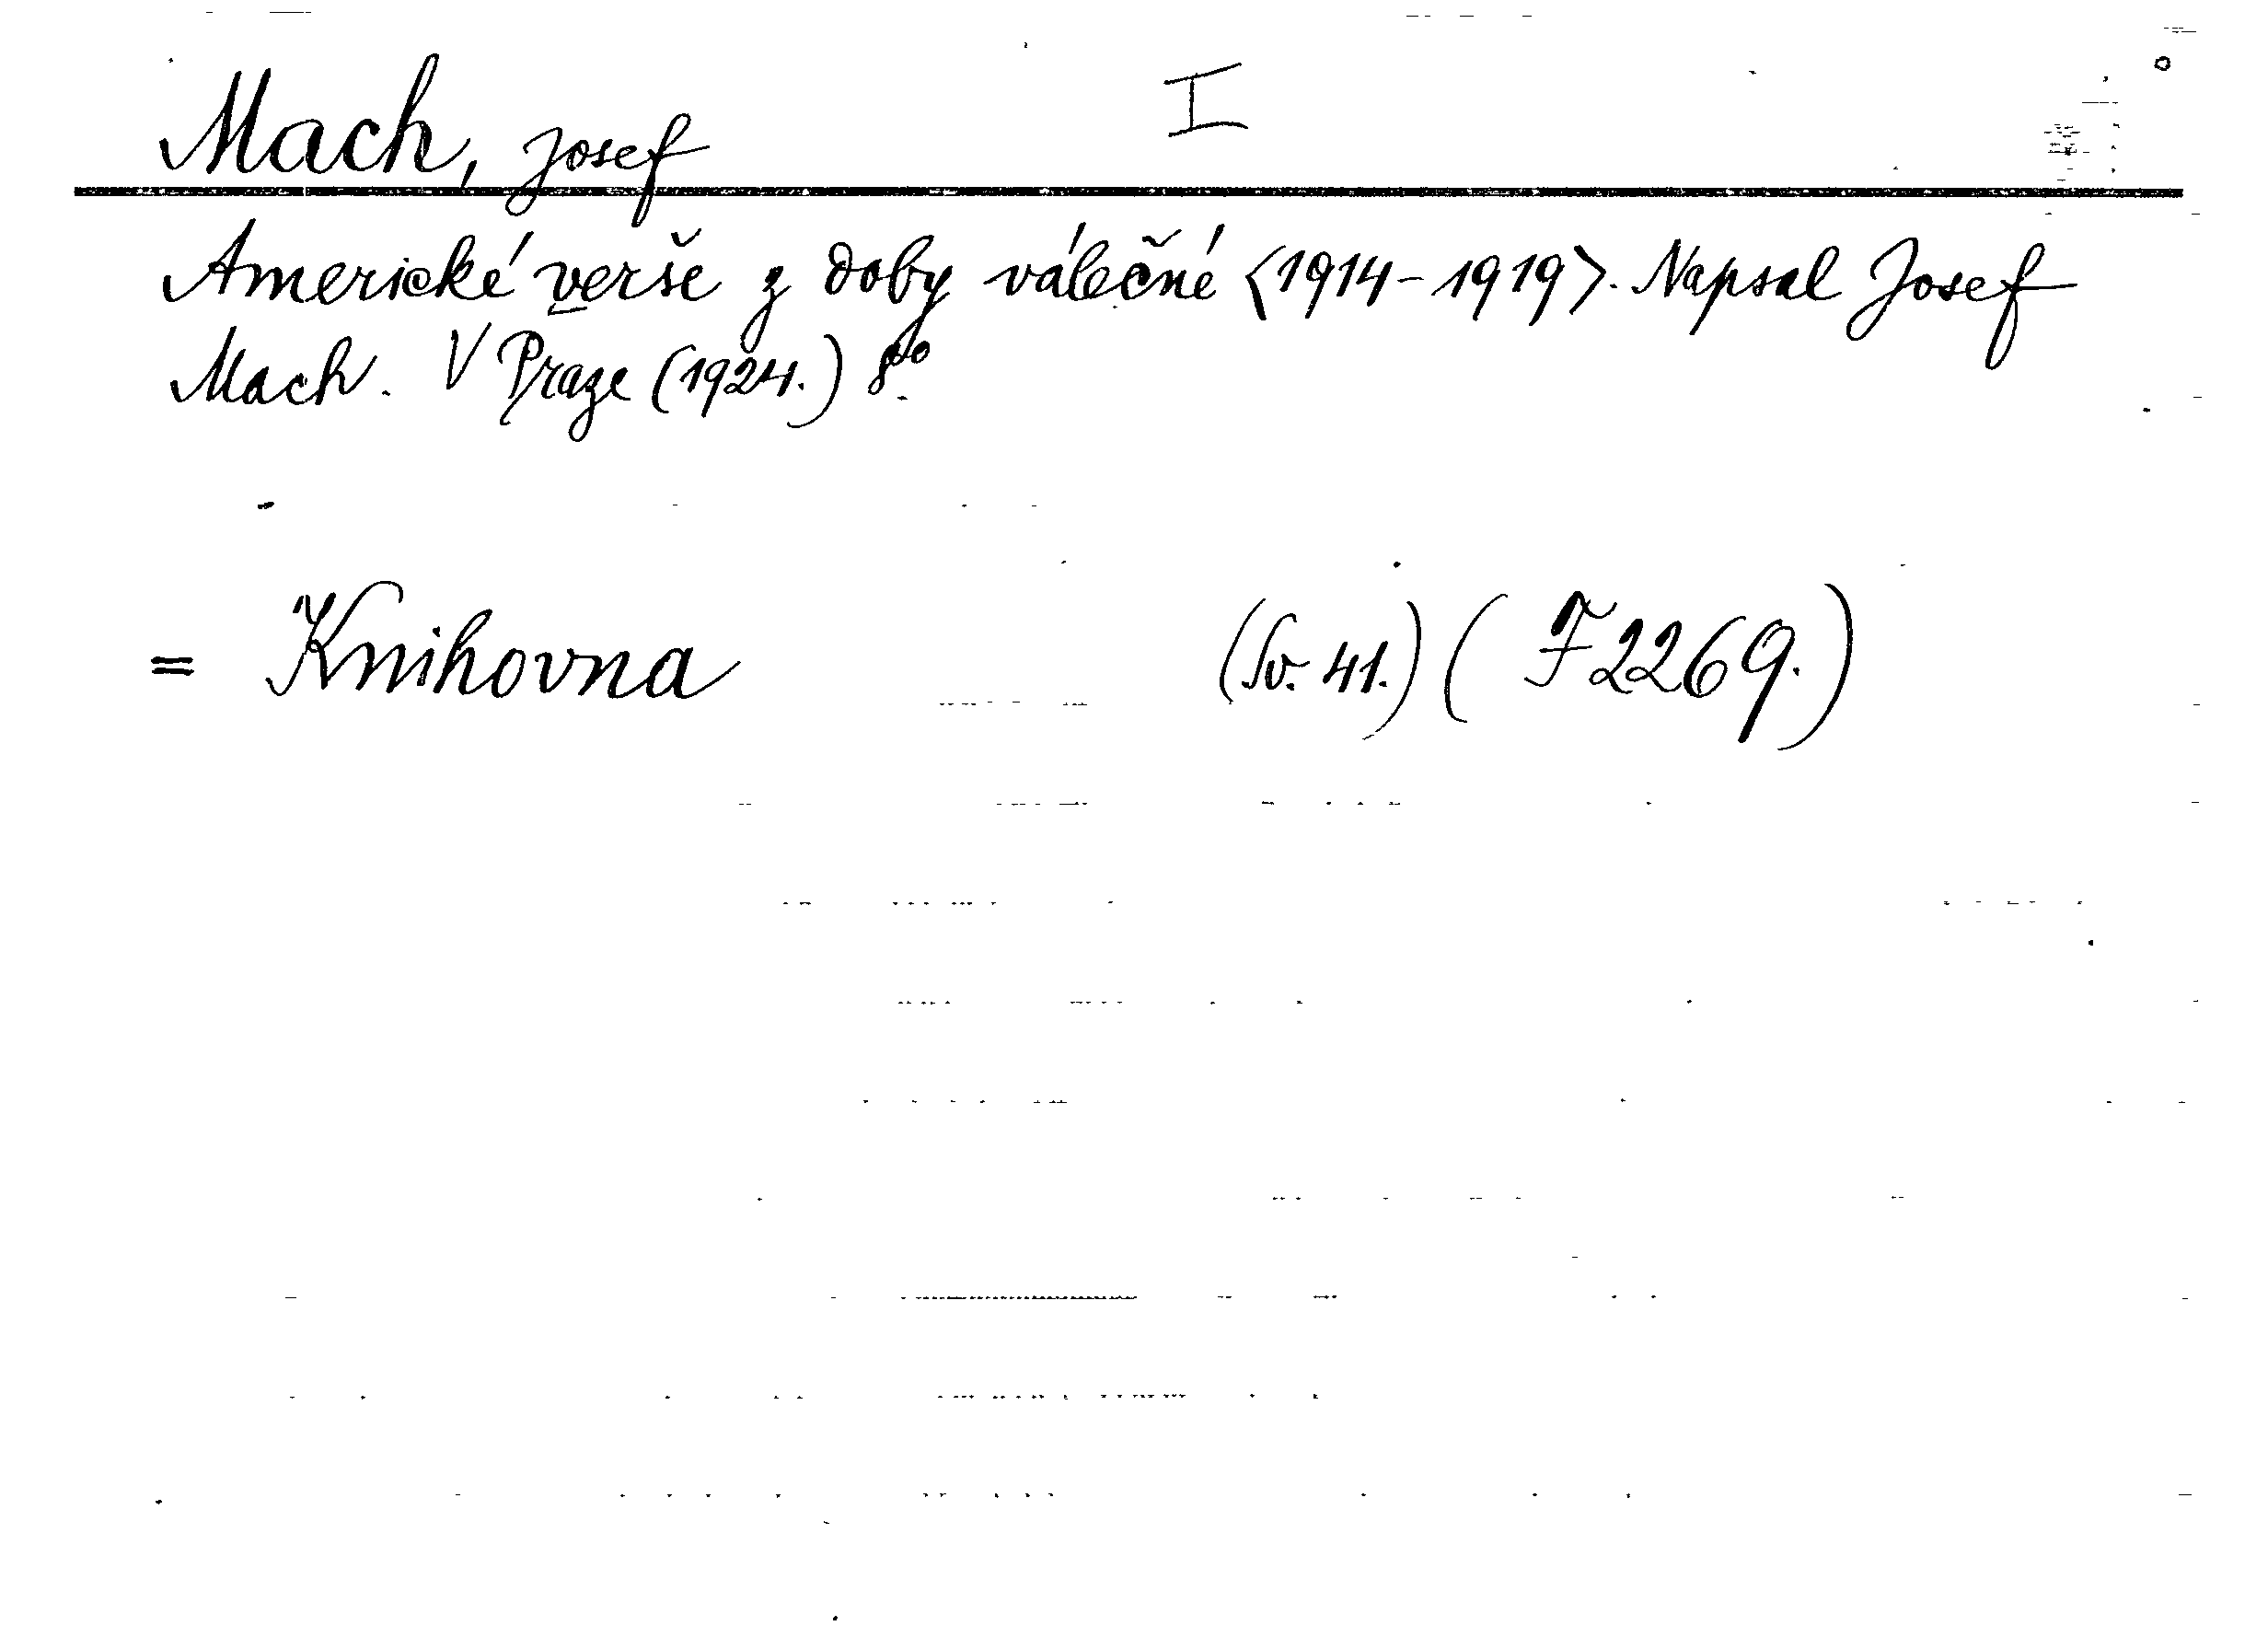 Mach, Josef I
Americké verše z doby válečné <1914-1919>. Napsal Josef
Mach. V Praze (1924.) 8°.
= Knihovna (Sv. 41.) (F 2269.)